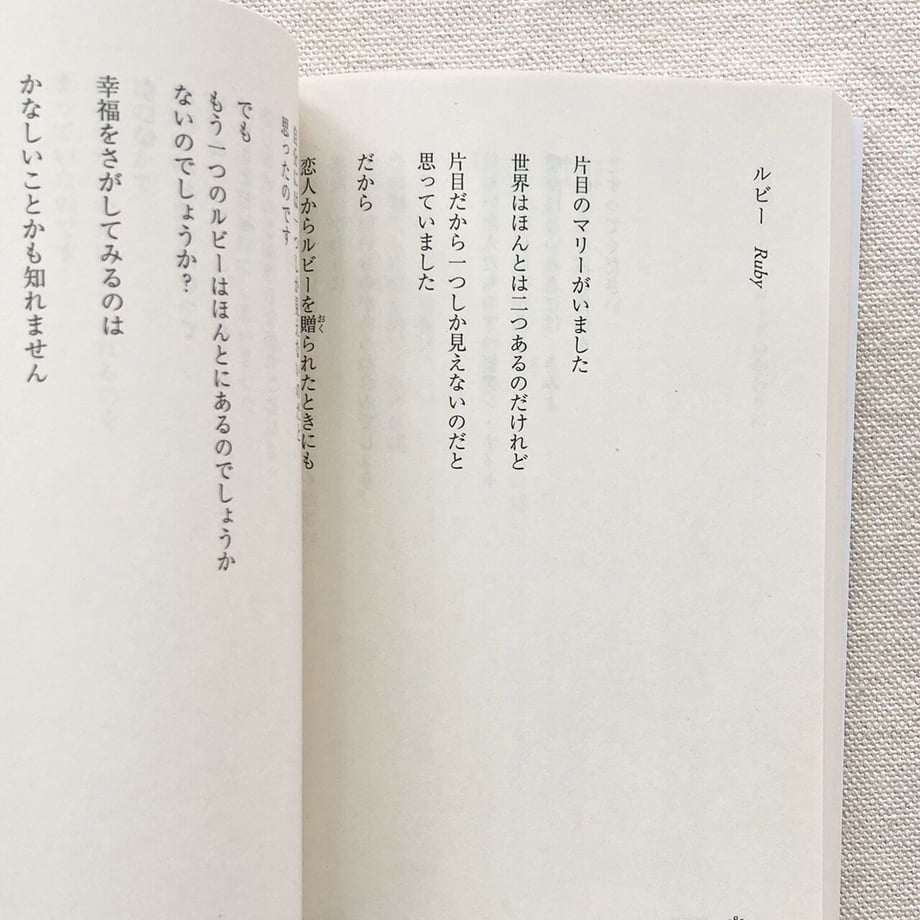 ルビー Ruby
片目のマリーがいました
世界はほんとは二つあるのだけれど
片目だから一つしか見えないのだと
思っていました
だから
恋人からルビーを贈られたときにも
おく
思ったのです
でも
もう一つのルビーはほんとにあるのでしょうか
ないのでしょうか?
幸福をさがしてみるのは
かなしいことかも知れません